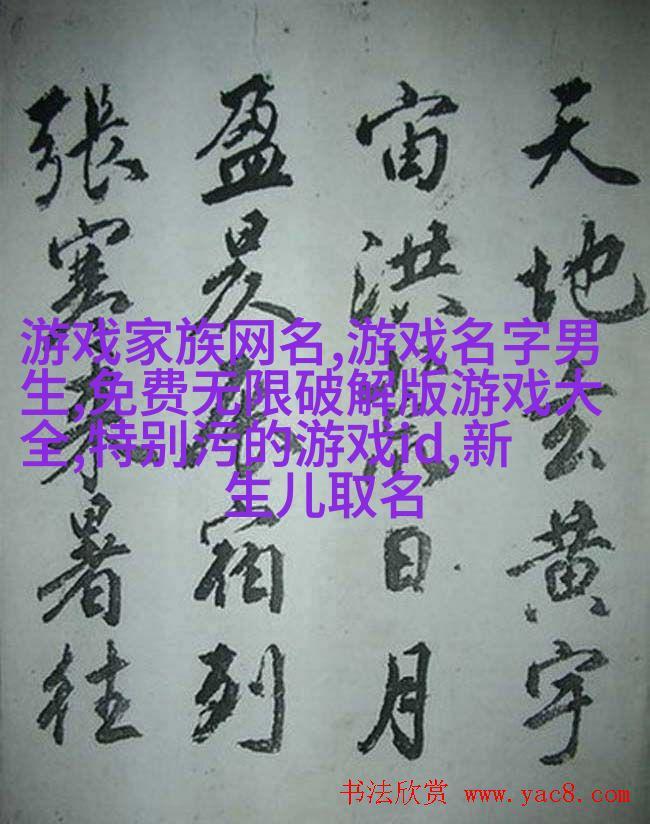 天地玄黄宇
宙洪荒日月
盈昃辰宿列
張寒来暑往
游戏家族网名,游戏名字男
生,免费无限破解版游戏大
全,特别污的游戏id,新
生儿取名
书法欣赏 www.yac8.com